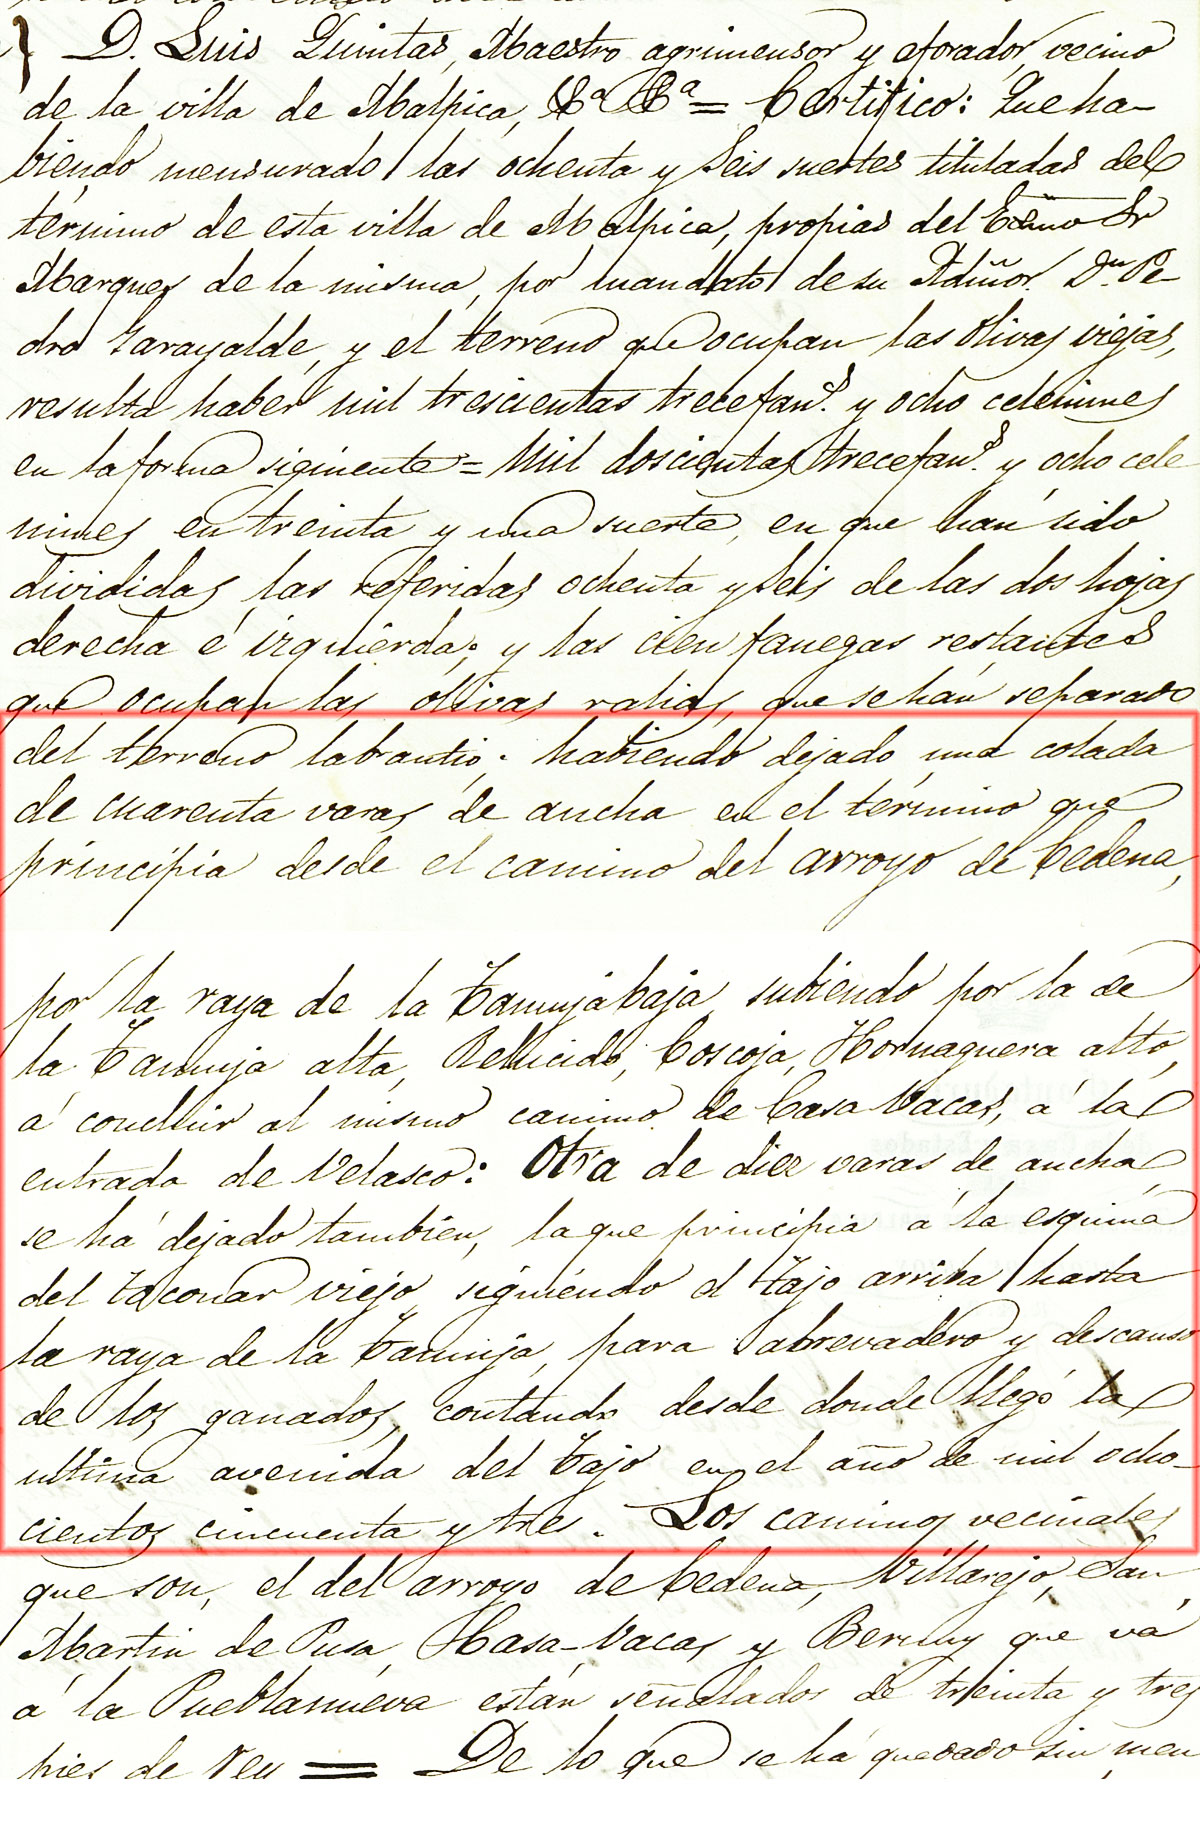 D. Luis Quintas, Maestro agrimensor y aforador, vecino
de la villa de Malpica, &ª &ª = Certifico: Que ha-
biendo mensurado las ochenta y seis suertes tituladas del
término de esta villa de Malpica, propias del Excmo Sr
Marques de la misma, por mandato de su Admor. Dn. Pe-
dro Garayalde, y el terreno que ocupan las olivas viejas,
resulta haber mil trescientas trece fans. y ocho celemines
en la forma siguiente = Mil doscientas trece fans. y ocho cele
mines en treinta y una suerte, en que han sido
divididas las referidas ochenta y seis de las dos hojas
derecha é izquierda; y las cien fanegas restantes
que ocupan las olivas que se han separado
del terreno labrantio; habiendo dejado una colada
de cuarenta varas de ancha en el término que
principia desde el camino del arroyo de Cedena,
por la raya de la Tamuja baja, subiendo por la de
la Tamuja alta, Relucido, Coscoja, Hornaguera alto,
á concluir al mismo camino de Casa Vacas, á la
entrada de Velasco: Otra de diez varas de ancha,
se há dejado tambien, la que principia á la esquina
del taconar viejo, siguiendo el Tajo arriba hasta
la raya de la Tamuja, para abrevadero y descanso
de los ganados, contando desde donde llegó la
ultima avenida del Tajo en el año de mil ocho-
cientos cincuenta y tres. Los caminos vecinales
que son, el del arroyo de Cedena, Villarejo, San
Martin de Pusa, Casa-Vacas y Bernuy que vá
á la Pueblanueva están señalados de treinta y tres
pies de = De lo que se há quedado sin men